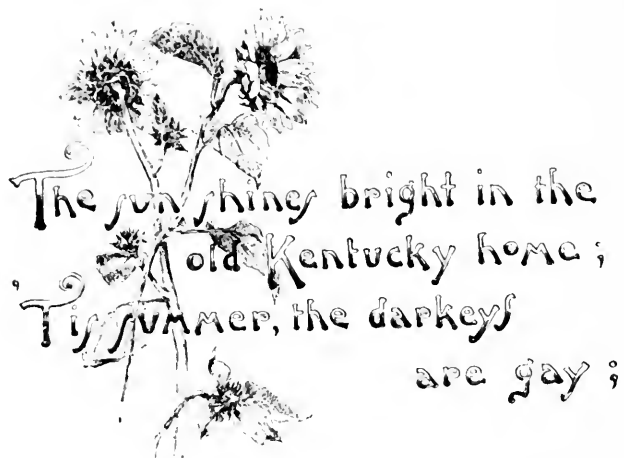 The sun shines bright in the
old Kentucky home;
'Tis summer, the darkeys
are gay;